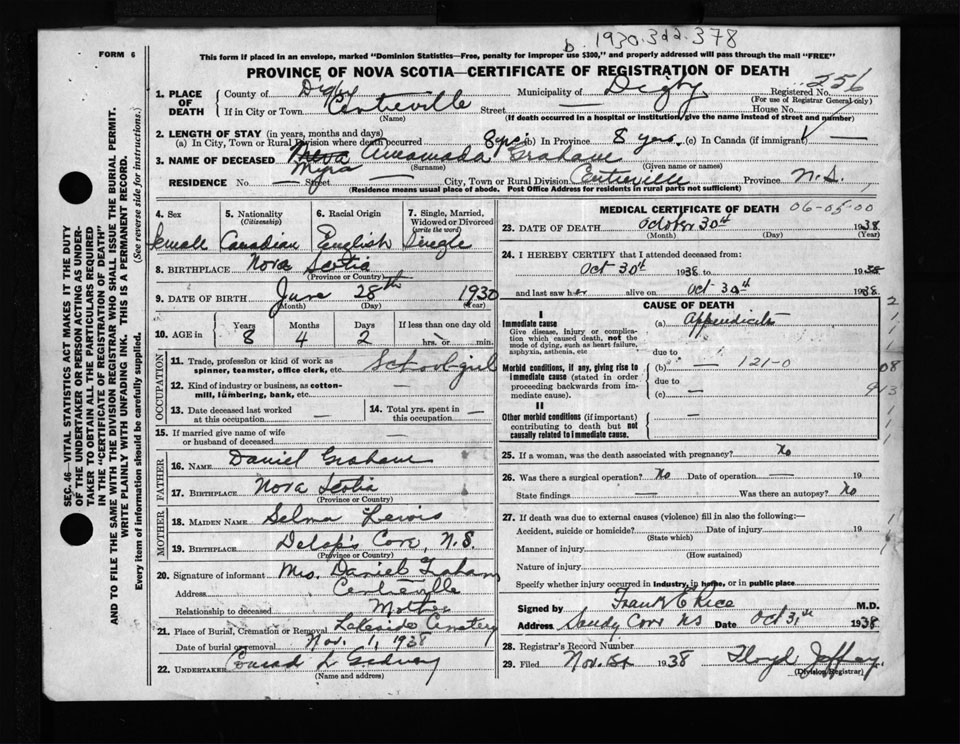 b. 1930.322.378
FORM 6
This form if placed in an envelope, marked "Dominion Statistics—Free, penalty for improper use $300," and properly addressed will pass through the mail "FREE"
PROVINCE OF NOVA SCOTIA—CERTIFICATE OF REGISTRATION OF DEATH
256
1. PLACE OF DEATH County of Digby Municipality of Digby Registered No.
(For use of Registrar General only)
If in City or Town Centreville Street — House No.
(Name) (If death occurred in a hospital or institution, give name instead of street and number)
2. LENGTH OF STAY (in years, months and days)
(a) In City, Town or Rural Division where death occurred 8 yrs (b) In Province 8 yrs. (c) In Canada (if immigrant) —
3. NAME OF DECEASED Graham
Myra (Surname) (Given name or names)
RESIDENCE No. — Street — City, Town or Rural Division Centreville Province N.S.
(Residence means usual place of abode. Post Office Address for residents in rural parts not sufficient)
4. Sex 5. Nationality 6. Racial Origin 7. Single, Married,
(Citizenship) Widowed or Divorced
(write the word)
Female Canadian English Single
8. BIRTHPLACE Nova Scotia
(Province or Country)
9. DATE OF BIRTH June 28th 1930
(Month) (Day) (Year)
10. AGE in Years Months Days If less than one day old
8 4 2 hrs. or min.
OCCUPATION
11. Trade, profession or kind of work as
spinner, teamster, office clerk, etc. Schoolgirl
12. Kind of industry or business, as cotton-
mill, lumbering, bank, etc. —
13. Date deceased last worked
at this occupation —
14. Total yrs. spent in
this occupation —
15. If married give name of wife
or husband of deceased —
FATHER
16. NAME Daniel Graham
17. BIRTHPLACE Nova Scotia
(Province or Country)
MOTHER
18. MAIDEN NAME Selma Lewis
19. BIRTHPLACE Delap's Cove, N.S.
(Province or Country)
20. Signature of informant Mrs. Daniel Graham
Address Centreville
Relationship to deceased Mother
21. Place of Burial, Cremation or Removal Lakeside Cemetery
Date of burial or removal Nov. 1, 1938
22. UNDERTAKER Conrad L
(Name and address)
MEDICAL CERTIFICATE OF DEATH 06-05-00
23. DATE OF DEATH October 30th 1938
(Month) (Day) (Year)
24. I HEREBY CERTIFY that I attended deceased from:
Oct 30th 1938 to 1938
and last saw her alive on Oct 30th 1938.
CAUSE OF DEATH
I
Immediate cause (a) Appendicitis
Give disease, injury or complica-
tion which caused death, not the
mode of dying, such as heart failure,
asphyxia, asthenia, etc due to
Morbid conditions, if any, giving rise to (b) — 121-0
immediate cause (stated in order due to
proceeding backwards from im-
mediate cause). (c) —
II
Other morbid conditions (if important) —
contributing to death but not
causally related to immediate cause.
25. If a woman, was the death associated with pregnancy? No
26. Was there a surgical operation? No Date of operation — 19
State findings — Was there an autopsy? No
27. If death was due to external causes (violence) fill in also the following:—
Accident, suicide or homicide? Date of injury 19
(State which)
Manner of injury
(How sustained)
Nature of injury
Specify whether injury occurred in industry, in home, or in public place
Signed by Frank E Rice M.D.
Address Sandy Cove NS Date Oct 31st 1938
28. Registrar's Record Number
29. Filed Nov. 1st 1938 Floyd
(Division Registrar)
SEC. 46—VITAL STATISTICS ACT MAKES IT THE DUTY
OF THE UNDERTAKER OR PERSON ACTING AS UNDER-
TAKER TO OBTAIN ALL THE PARTICULARS REQUIRED
IN THE "CERTIFICATE OF REGISTRATION OF DEATH"
AND TO FILE THE SAME WITH THE DIVISION REGISTRAR WHO SHALL ISSUE THE BURIAL PERMIT.
WRITE PLAINLY WITH UNFADING INK. THIS IS A PERMANENT RECORD.
Every item of information should be carefully supplied. (See reverse side for instructions.)